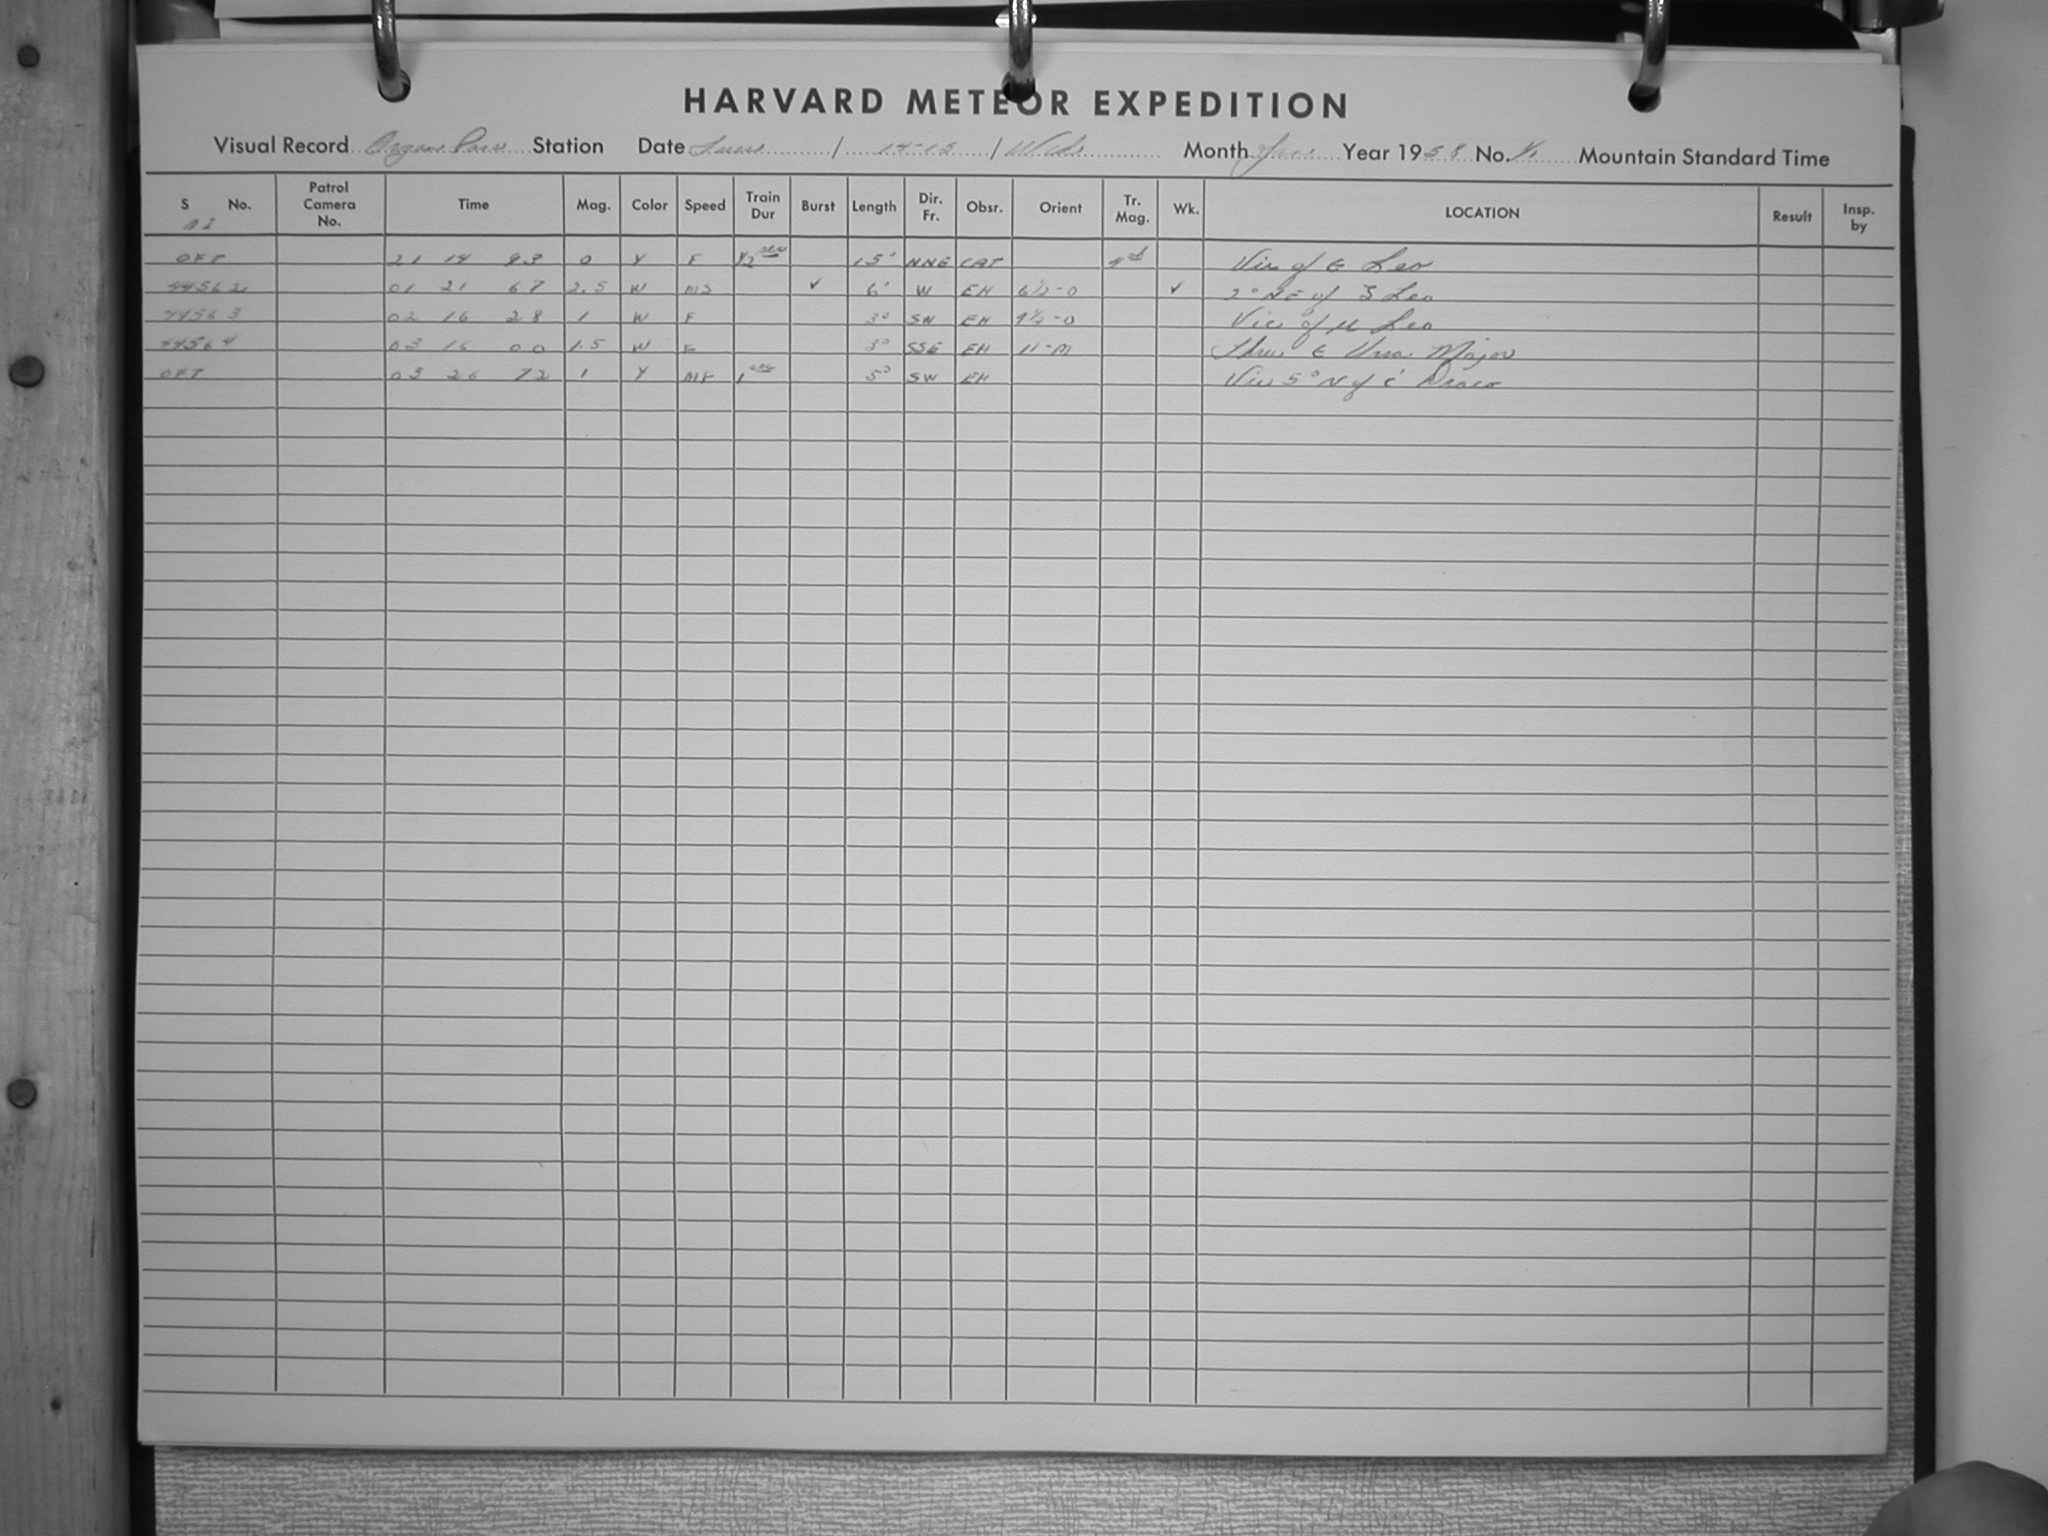 HARVARD METEOR EXPEDITION
Visual Record Organ Pass Station Date Tues / 14-15 / Weds Month Jan Year 1958 No. Mountain Standard Time
S No. Patrol Camera No. Time Mag. Color Speed Train Dur Burst Length Dir. Fr. Obsr. Orient Tr. Mag. Wk. LOCATION Result Insp. by
OFT 21 14 93 0 Y F 1/2 sec 15° NNE CAT Vic of ε Leo
44562 01 21 67 2.5 W MS ✓ 6° W EH 6 1/2-0 ✓ 2° NE of ζ Leo
44563 02 16 28 1 W F 3° SW EH 9 1/2-0 Vic of μ Leo
44564 03 15 00 1.5 W F 3° SSE EH 11-M Thru ε Ursa Major
OFT 03 26 72 1 Y MF 1 sec 5° SW EH Vic 5° N of ι Draco